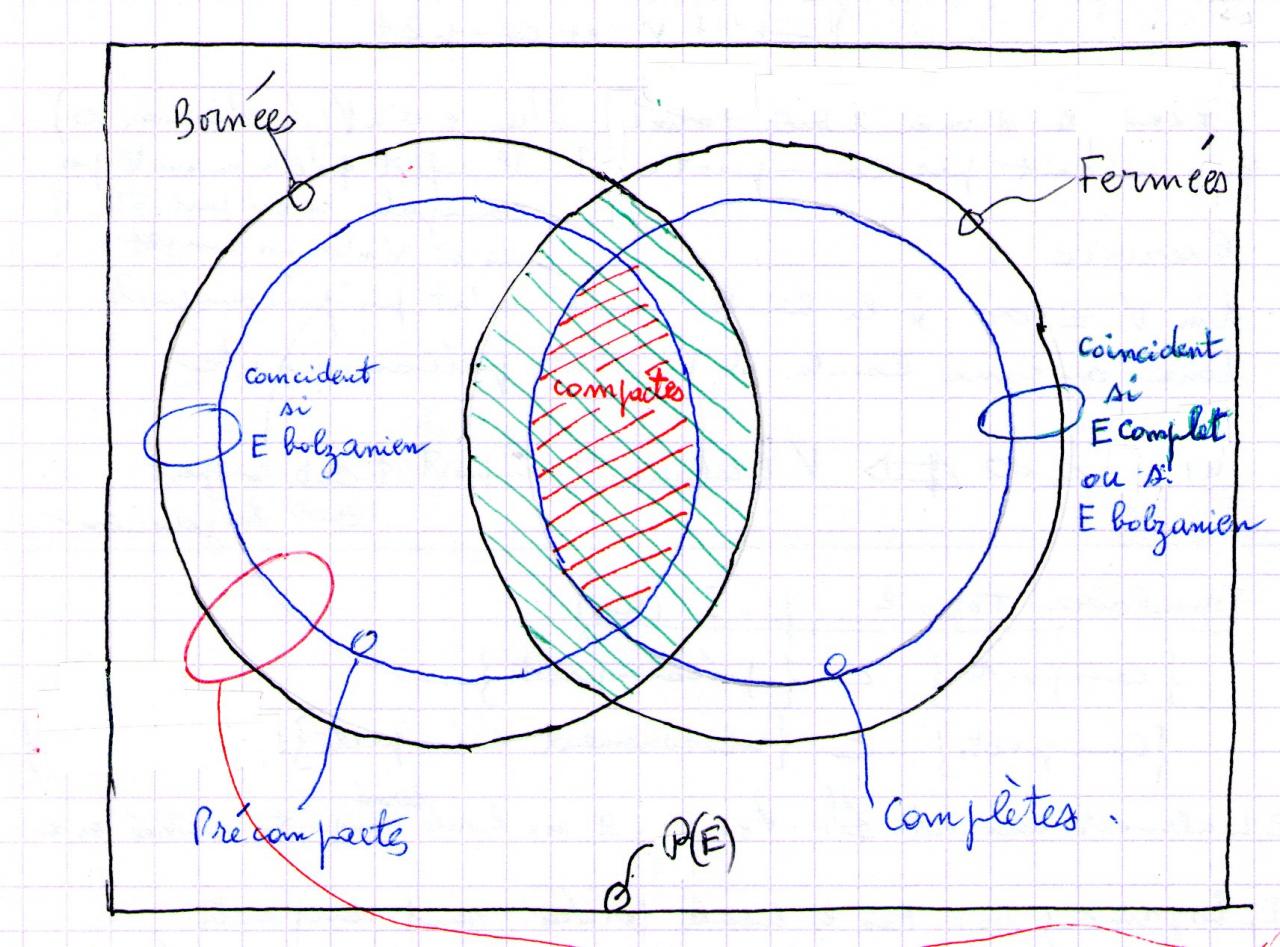 Bornées
Fermées
coincident
si
E bolzanien
compactes
coincident
si
E complet
ou si
E bolzanien
Précompactes
Complètes.
P(E)